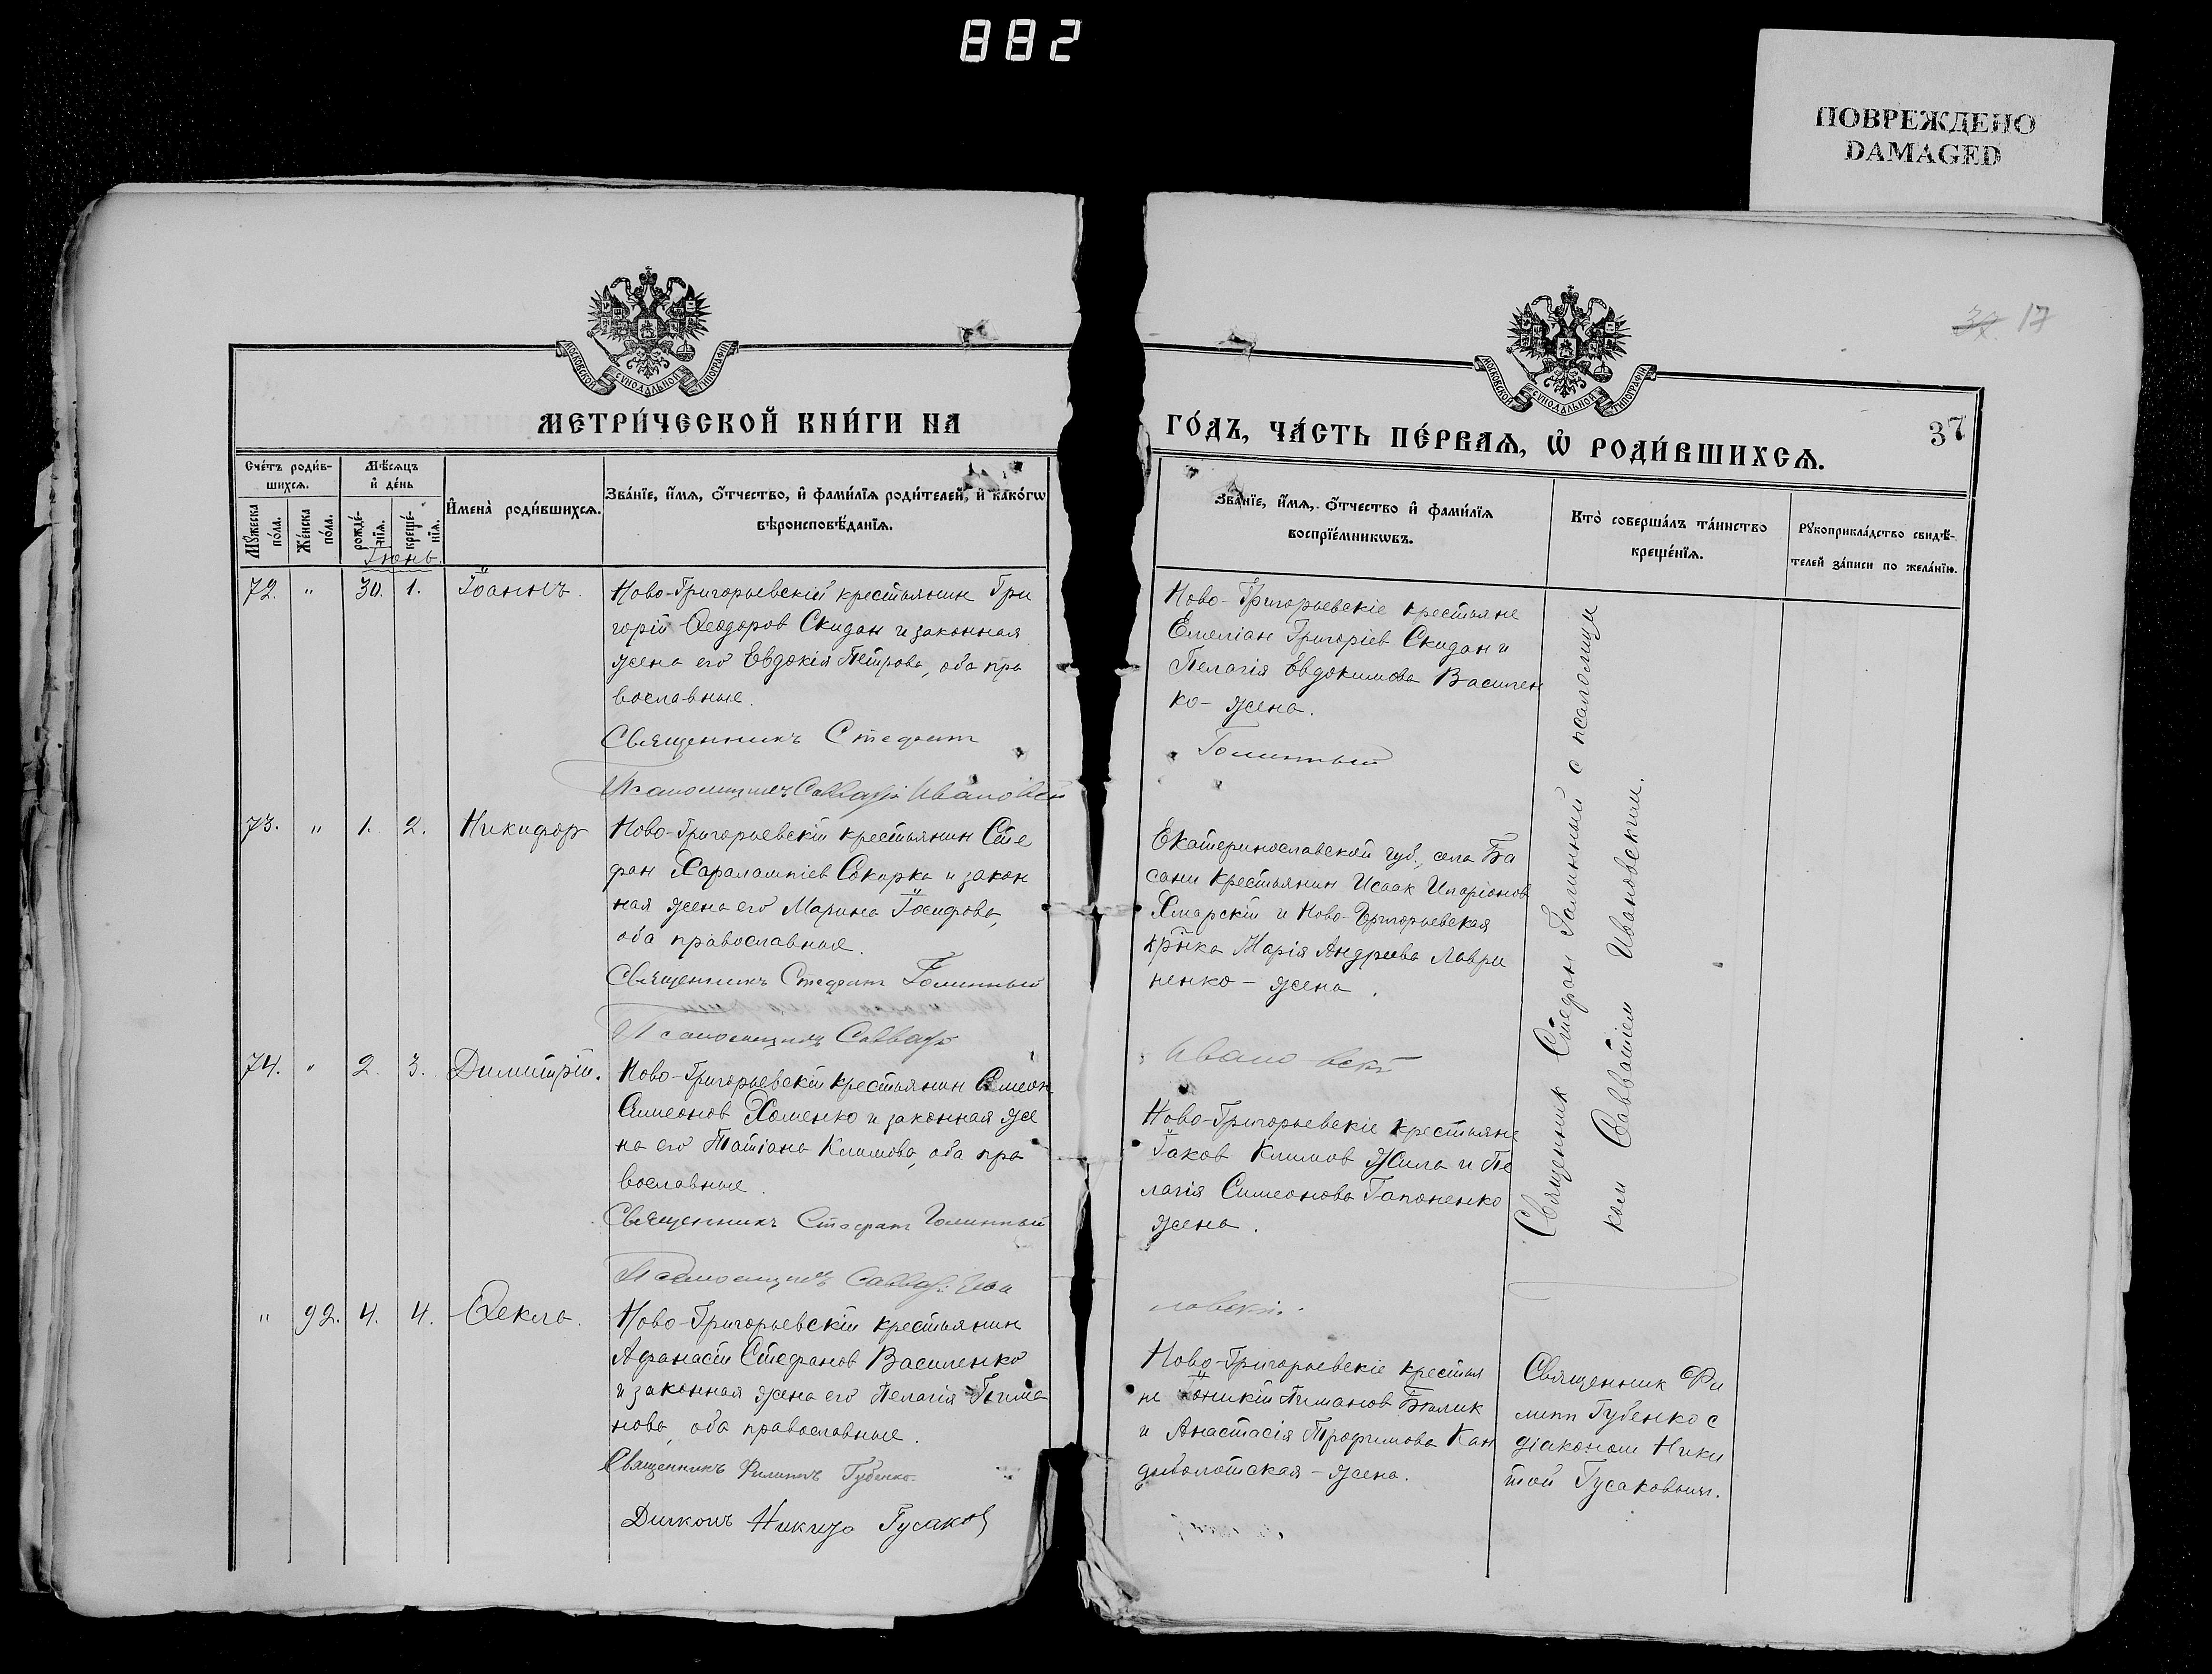 882
ПОВРЕЖДЕНО
DAMAGED
37 17
МОСКОВСКОЙ СѴНОДАЛЬНОЙ ТИПОГРАФІИ
МОСКОВСКОЙ СѴНОДАЛЬНОЙ ТИПОГРАФІИ
МЕТРИ́ЧЕСКОЙ КНИ́ГИ НА
ГО́ДЪ, ЧА́СТЬ ПЕ́РВАѦ, Ѡ҆ РОДИ́ВШИХСѦ.
37
Сче́тъ роди́в-
шихсѧ.
Мꙋ́жеска
по́ла.
Же́нска
по́ла.
Мѣ́сѧцъ
и҆ де́нь
рожде́-
нїѧ.
креще́-
нїѧ.
И҆мена̀ роди́вшихсѧ.
Зва́нїе, и҆́мѧ, ѻ҆́тчество, и҆ фами́лїѧ роди́телей, и҆ како́гѡ
вѣроисповѣ́данїѧ.
Зва́нїе, и҆́мѧ, ѻ҆́тчество и҆ фами́лїѧ
воспрїе́мникѡвъ.
Кто̀ соверша́лъ та́инство
креще́нїѧ.
Рꙋкоприкла́дство свидѣ́-
телей за́писи по жела́нїю.
Іюнь.
72. " 30. 1. Іоаннъ.
Ново-Григорьевскій крестьянин Гри
горій Ѳеодоров Скидан и законная
жена его Евдокія Петрова, оба пра
вославные.
Священникъ Стефанъ
Псаломщикъ Савватій Ивановскі
Ново-Григорьевскіе крестьяне
Емеліан Григоріев Скидан и
Пелагія Евдокимова Василен
ко - жена.
Голинный
73. " 1. 2. Никифор
Ново-Григорьевскій крестьянин Сте
фан Харалампіев Сокирка и закон
ная жена его Марина Іосифова,
оба православные.
Священникъ Стефанъ Голинный
Псаломщикъ Савватій
Екатеринославской губ., села Ба
сани крестьянин Исаак Иларіонов
Хмарскій и Ново-Григорьевская
кр‑нка Марія Андреева Лаври
ненко - жена.
Ивановскій
74. " 2. 3. Димитрій.
Ново-Григорьевскій крестьянин Симеон
Симеонов Хоменко и законная же
на его Татіана Климова, оба пра
вославные.
Священникъ Стефанъ Голинный
Псаломщикъ Савватій Ива
Ново-Григорьевскіе крестьяне
Іаков Климов Жила и Пе
лагія Симеонова Гапоненко
жена.
новскій.
Священник Стефан Голинный с псаломщи
ком Савватіем Ивановским.
" 92. 4. 4. Ѳекла.
Ново-Григорьевскій крестьянин
Афанасій Стефанов Василенко
и законная жена его Пелагія Пима
нова, оба православные.
Священникъ Филиппъ Губенко
Діаконъ Никита Гусаков
Ново-Григорьевскіе крестья
не Іоникій Пиманов Билик
и Анастасія Трофимова Кан
дыболотская - жена.
Священник Фи
липп Губенко с
діаконом Ники
той Гусаковым.